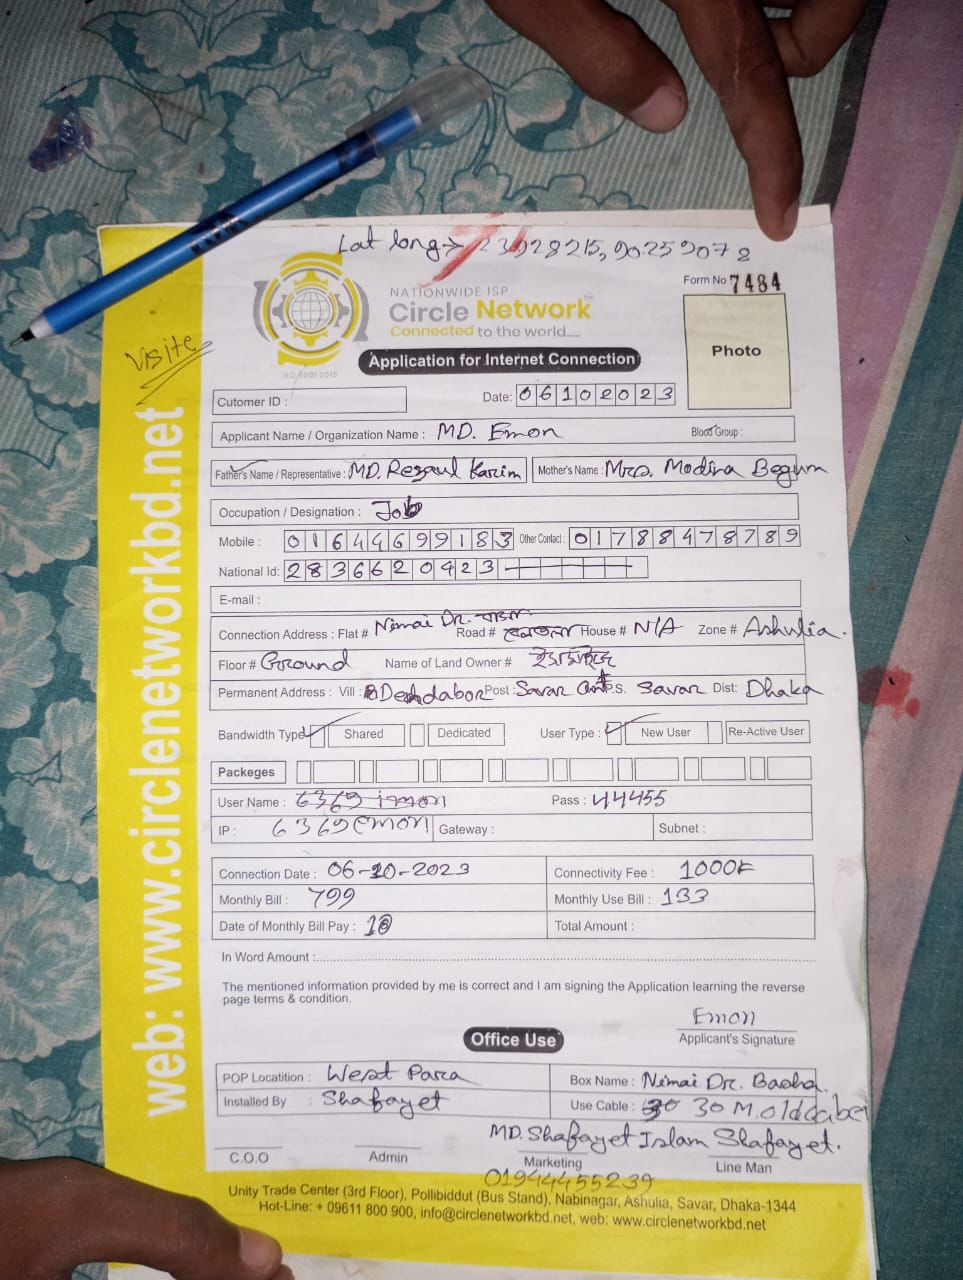 Lat long → 23.928215, 90.259078
Form No 7484
NATIONWIDE ISP
Circle Network
Connected to the world.....
ISO 9001:2015
Visite
Application for Internet Connection
Photo
Cutomer ID :
Date: 06102023
Applicant Name / Organization Name : MD. Emon Blood Group :
Father's Name / Representative : MD. Rezaul Karim Mother's Name : Mrs. Modina Begum
Occupation / Designation : Job
Mobile : 01644699183 Other Contact : 01788478789
National Id: 2836620423
E-mail :
Connection Address : Flat # Nimai Dr. বাসা Road # House # N/A Zone # Ashulia.
Floor # Ground Name of Land Owner #
Permanent Address : Vill : Dendabor Post : Savar Cant P.S. Savar Dist: Dhaka
Bandwidth Type Shared Dedicated User Type : New User Re-Active User
Packeges
User Name : 6369 Pass : 44455
IP : 6369emon Gateway : Subnet :
Connection Date : 06-10-2023 Connectivity Fee : 1000৳
Monthly Bill : 799 Monthly Use Bill : 133
Date of Monthly Bill Pay : 10 Total Amount :
In Word Amount :
The mentioned information provided by me is correct and I am signing the Application learning the reverse
page terms & condition.
Emon
Applicant's Signature
Office Use
POP Locatition : West Para Box Name : Nimai Dr. Basha.
Installed By : Shafayet Use Cable : 30 30 M. old cabel
MD. Shafayet Islam Shafayet.
C.O.O Admin Marketing Line Man
01944455239
Unity Trade Center (3rd Floor), Pollibiddut (Bus Stand), Nabinagar, Ashulia, Savar, Dhaka-1344
Hot-Line: + 09611 800 900, info@circlenetworkbd.net, web: www.circlenetworkbd.net
web: www.circlenetworkbd.net